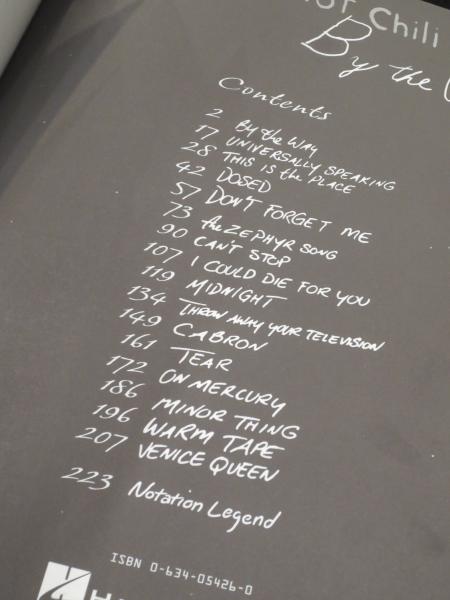 Hot Chili
By the
Contents
2 By the WAY
17 UNIVERSALLY SPEAKING
28 THIS is the PLACE
42 DOSED
57 DON'T FORGET ME
73 the ZEPHYR SONG
90 CAN'T STOP
107 I COULD DIE FOR YOU
119 MIDNIGHT
134 THROW AWAY YOUR TELEVISION
149 CABRON
161 TEAR
172 ON MERCURY
186 MINOR THING
196 WARM TAPE
207 VENICE QUEEN
223 Notation Legend
ISBN 0-634-05426-0